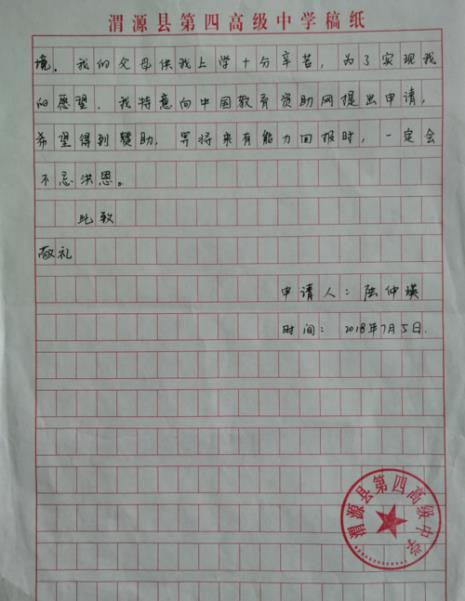 渭源县第四高级中学稿纸
境。我的父母供我上学十分辛苦，为了实现我
的愿望，我特意向中国教育资助网提出申请，
希望得到援助，若将来有能力回报时，一定会
不忘洪恩。
此致
敬礼
申请人：陆仲瑛
时间：2018年7月5日.
渭源县第四高级中学